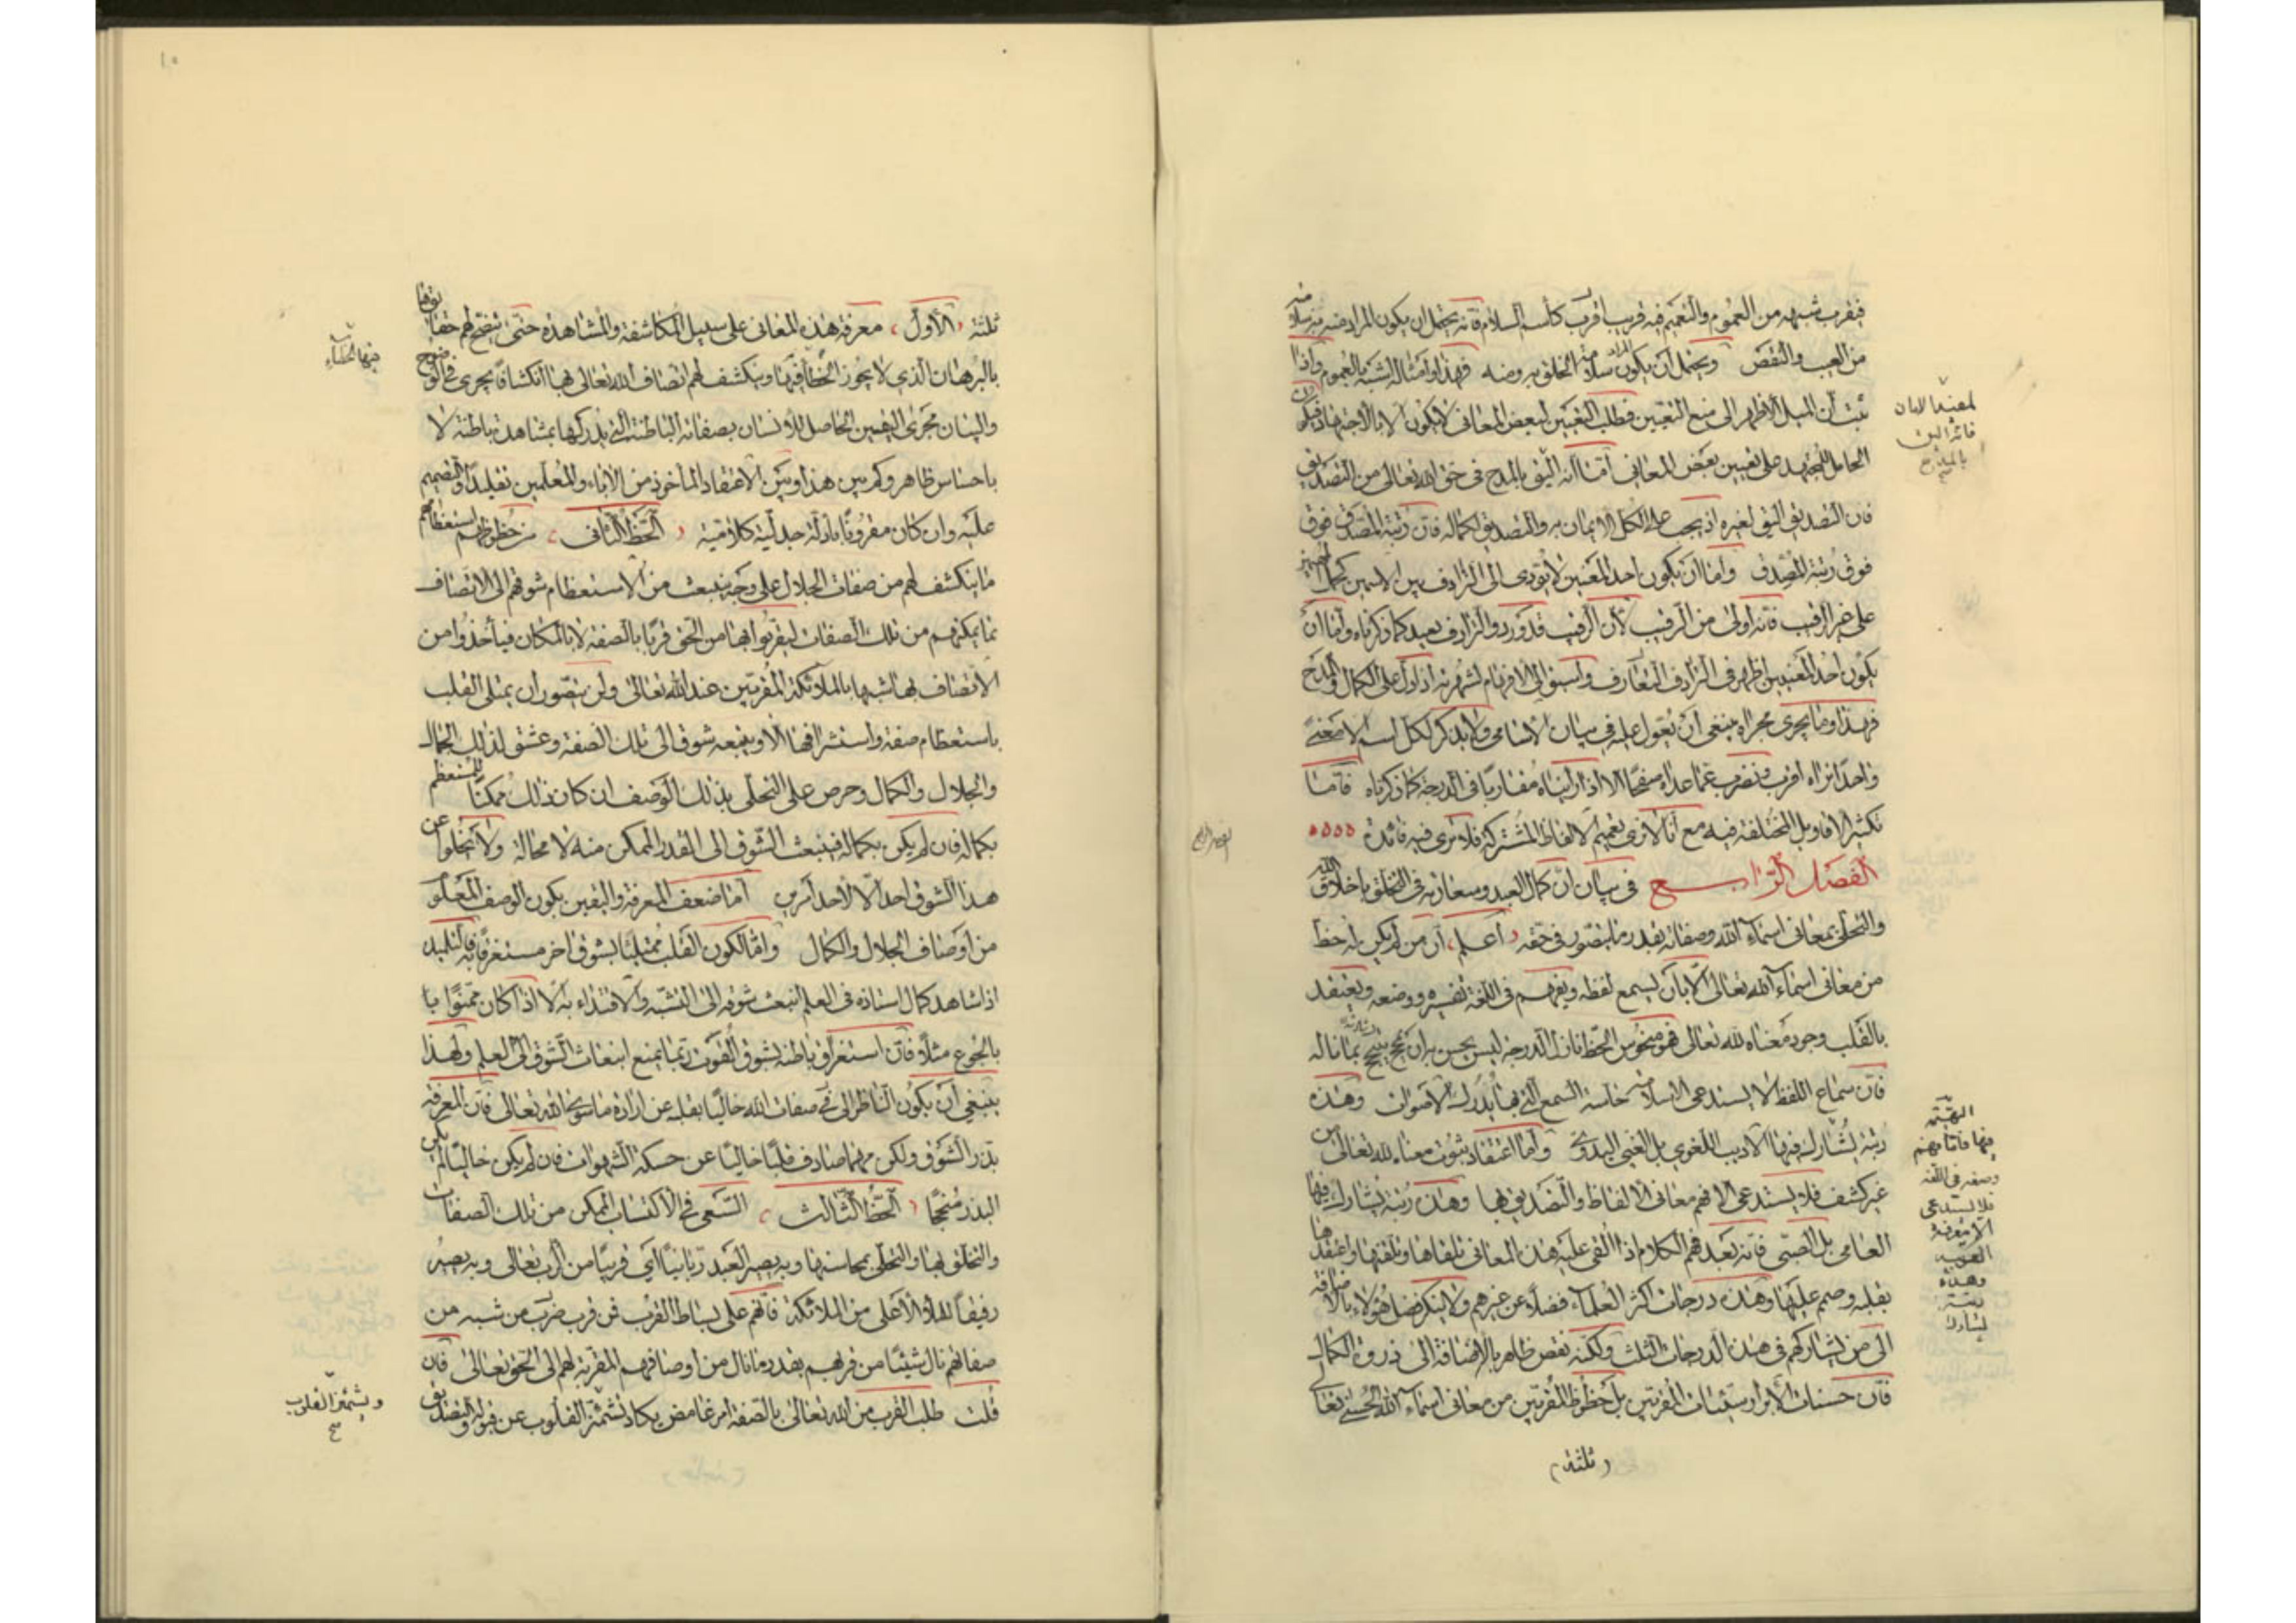 فيقرب شبهه من العموم والتعميم فيه قريب اقرب كأسم السلام فانه يحتمل ان يكون المراد منه سلامته
من العيب والنقص ويحتمل أن يكون المراد سلامة الخلق به ومنه فهذا وامثاله اشبه بالعموم واذا
ثبت أن الميل الأظهر إلى منع التعميم فطلب التعيين لبعض المعاني لا يكون الا بالاجتهاد فيكون
الحامل للمجتهد على تعيين بعض المعاني امّا أنه اليق بالمدح في حق الله تعالى من التصديق
فان التصديق اليق لغيره اذ يجب على الكل الايمان به والتصديق لكماله فان رتبة المصدق فوق
فوق رتبة المُصَدِّق وامّا ان يكون احد المعنيين لا يؤدى الى الترادف بين الاسمين كحمل المهيمن
على غير الرقيب فانه اولى من الرقيب لأن الرقيب قد ورد والترادف بعيد كما ذكرناه وامّا ان
يكون احد المعنيين اظهر في الترادف التعارف واسبق الى الافهام لشهرته او ادل على الكمال والمدح
فهذا وما يجرى مجراه ينبغى أن يُعوّل عليه في بيان الاسامى ولا يذكر لكل اسم الا معنىً
واحدًا نراه اقرب ونضرب عما عداه صفحًا الا اذا رأيناه مقاربًا في الدرجة كما ذكرناه فامّا
تكثير الاقاويل المختلفة فيه مع أنّا لا نرى تعميم الالفاظ المشتركة فلا نرى فيه فائدة
الفصل الرّابع في بيان انّ كمال العبد وسعادته في التخلق باخلاق الله
والتحلى بمعانى اسماء الله وصفاته بقدر ما يتصور في حقه اعلم ان من لم يكن له حظ
من معانى اسماء الله تعالى الّا بأن يسمع لفظه ويفهم في اللّغة تفسيره ووضعه ويعتقد
بالقلب وجود معناه لله تعالى فهو منحوس الحظ نازل الدرجة ليس يحسن به ان يتبجح بما ناله
فانّ سماع اللفظ لا يستدعى الا سلامة حاسّة السمع التى بها يُدرك الاصوات وهذه
رتبة يُشارك فيها الاديب اللغوي بل الغبي البدوي وامّا اعتقاد ثبوت معناه لله تعالى من
غير كشف فلا يستدعى الا فهم معانى الالفاظ والتصديق بها وهذه رُتبة يشارك فيها
العامى بل الصبى فانه بعد فهم الكلام اذا القى عليه هذه المعانى تلقاها وتلقنها واعتقدها
بقلبه وصمم عليها وهذه درجات اكثر العلماء فضلاً عن غيرهم ولا ينكر فضل هؤلاء بالاضافة
الى من لم يشاركهم في هذه الدرجات الثلث ولكنّه نقص ظاهر بالاضافة الى ذروة الكمال
فانّ حسنات الأبرار سيّئات المقرّبين بل حظوظ المقرّبين من معانى اسماء الله الحسنى تعا
(ثلثة)
لمعنييها لانه
بالمدح
البهيمة
فيها فامّا فهم
وضعه في اللغة
فلا يستدعى
الا معرفة
العربيه
وهذه
رتبة
يشارك
ثلثة الأول معرفة هذه المعانى على سبيل المكاشفة والمشاهدة حتى يتضح لهم حقائقها
بالبرهان الذي لا يجوز الخطأ فيها وينكشف لهم اتصاف الله تعالى بها انكشافًا يجرى في الوضوح
والبيان مجرى اليقين الحاصل للانسان بصفاته الباطنة التي يُدركها بمشاهدة باطنة لا
باحساس ظاهر وكم بين هذا وبين الاعتقاد المأخوذ من الآباء والمعلمين تقليدًا والتصميم
عليه وان كان مقرونًا بادلّة جدليّة كلاميّة الحَظُّ الثانى من حظوظهم استعظامهم
ما ينكشف لهم من صفات الجلال على وجه ينبعث من الاستعظام شوقهم الى الاتصاف
بما يمكنهم من تلك الصفات ليقربوا بها من الحق قربًا بالصفة لا بالمكان فيأخذوا من
الاتصاف بها شبها بالملائكة المقربين عند الله تعالى ولن يتصور ان يمتلى القلب
باستعظام صفة واستشرافها الا ويتبعه شوق الى تلك الصفة وعشق لذلك الجمال
والجلال والكمال وحرص على التحلى بذلك الوصف ان كان ذلك ممكنًا للمستعظم
بكماله فان لم يكن بكماله فينبعث الشوق الى القدر الممكن منه لا محالة ولا يخلوا عن
هذا الشوق احد الّا لاحد امرين امّا ضعف المعرفة واليقين بكون الوصف المعلوم
من أوصاف الجلال والكمال وامّا لكون القلب ممتليًا بشوق اخر مستغرقًا به فالتلميذ
اذا شاهد كمال استاذه فى العلم انبعث شوقه الى التشبّه والاقتداء به الّا اذا كان ممنوًّا با
بالجوع مثلًا فان استغراق باطنه بشوق القوت ربّما يمنع انبعاث الشوق الى العلم ولهذا
ينبغي أن يكون الناظر الى في صفات الله خاليًا بقلبه عن ارادة ما سوى الله تعالى فان المعرفة
بذر الشوق ولكن مهما صادف قلبًا خاليًا عن حسكة الشهوات فان لم يكن خاليًا لم يكن
البذر مُنجحًا الحَظُّ الثّالث السّعى في الاكتساب الممكن من تلك الصفات
والتخلق بها والتحلّى بمحاسنها وبه يصير العبد ربانيًّا أي قريبًا من الرب تعالى وبه يصير
رفيقًا للملأ الأعلى من الملائكة فانهم على بساط القرب فمن قرب ضرب من شبه من
صفاتهم نال شيئًا من قربهم بقدر ما نال من اوصافهم المقربة لهم الى الحق تعالى فان
قلت طلب القرب من الله تعالى بالصفة امر غامض يكاد تشمئز القلوب عن قبوله والتصديق
فيها الخطاء
وتشمئز القلوب
صح